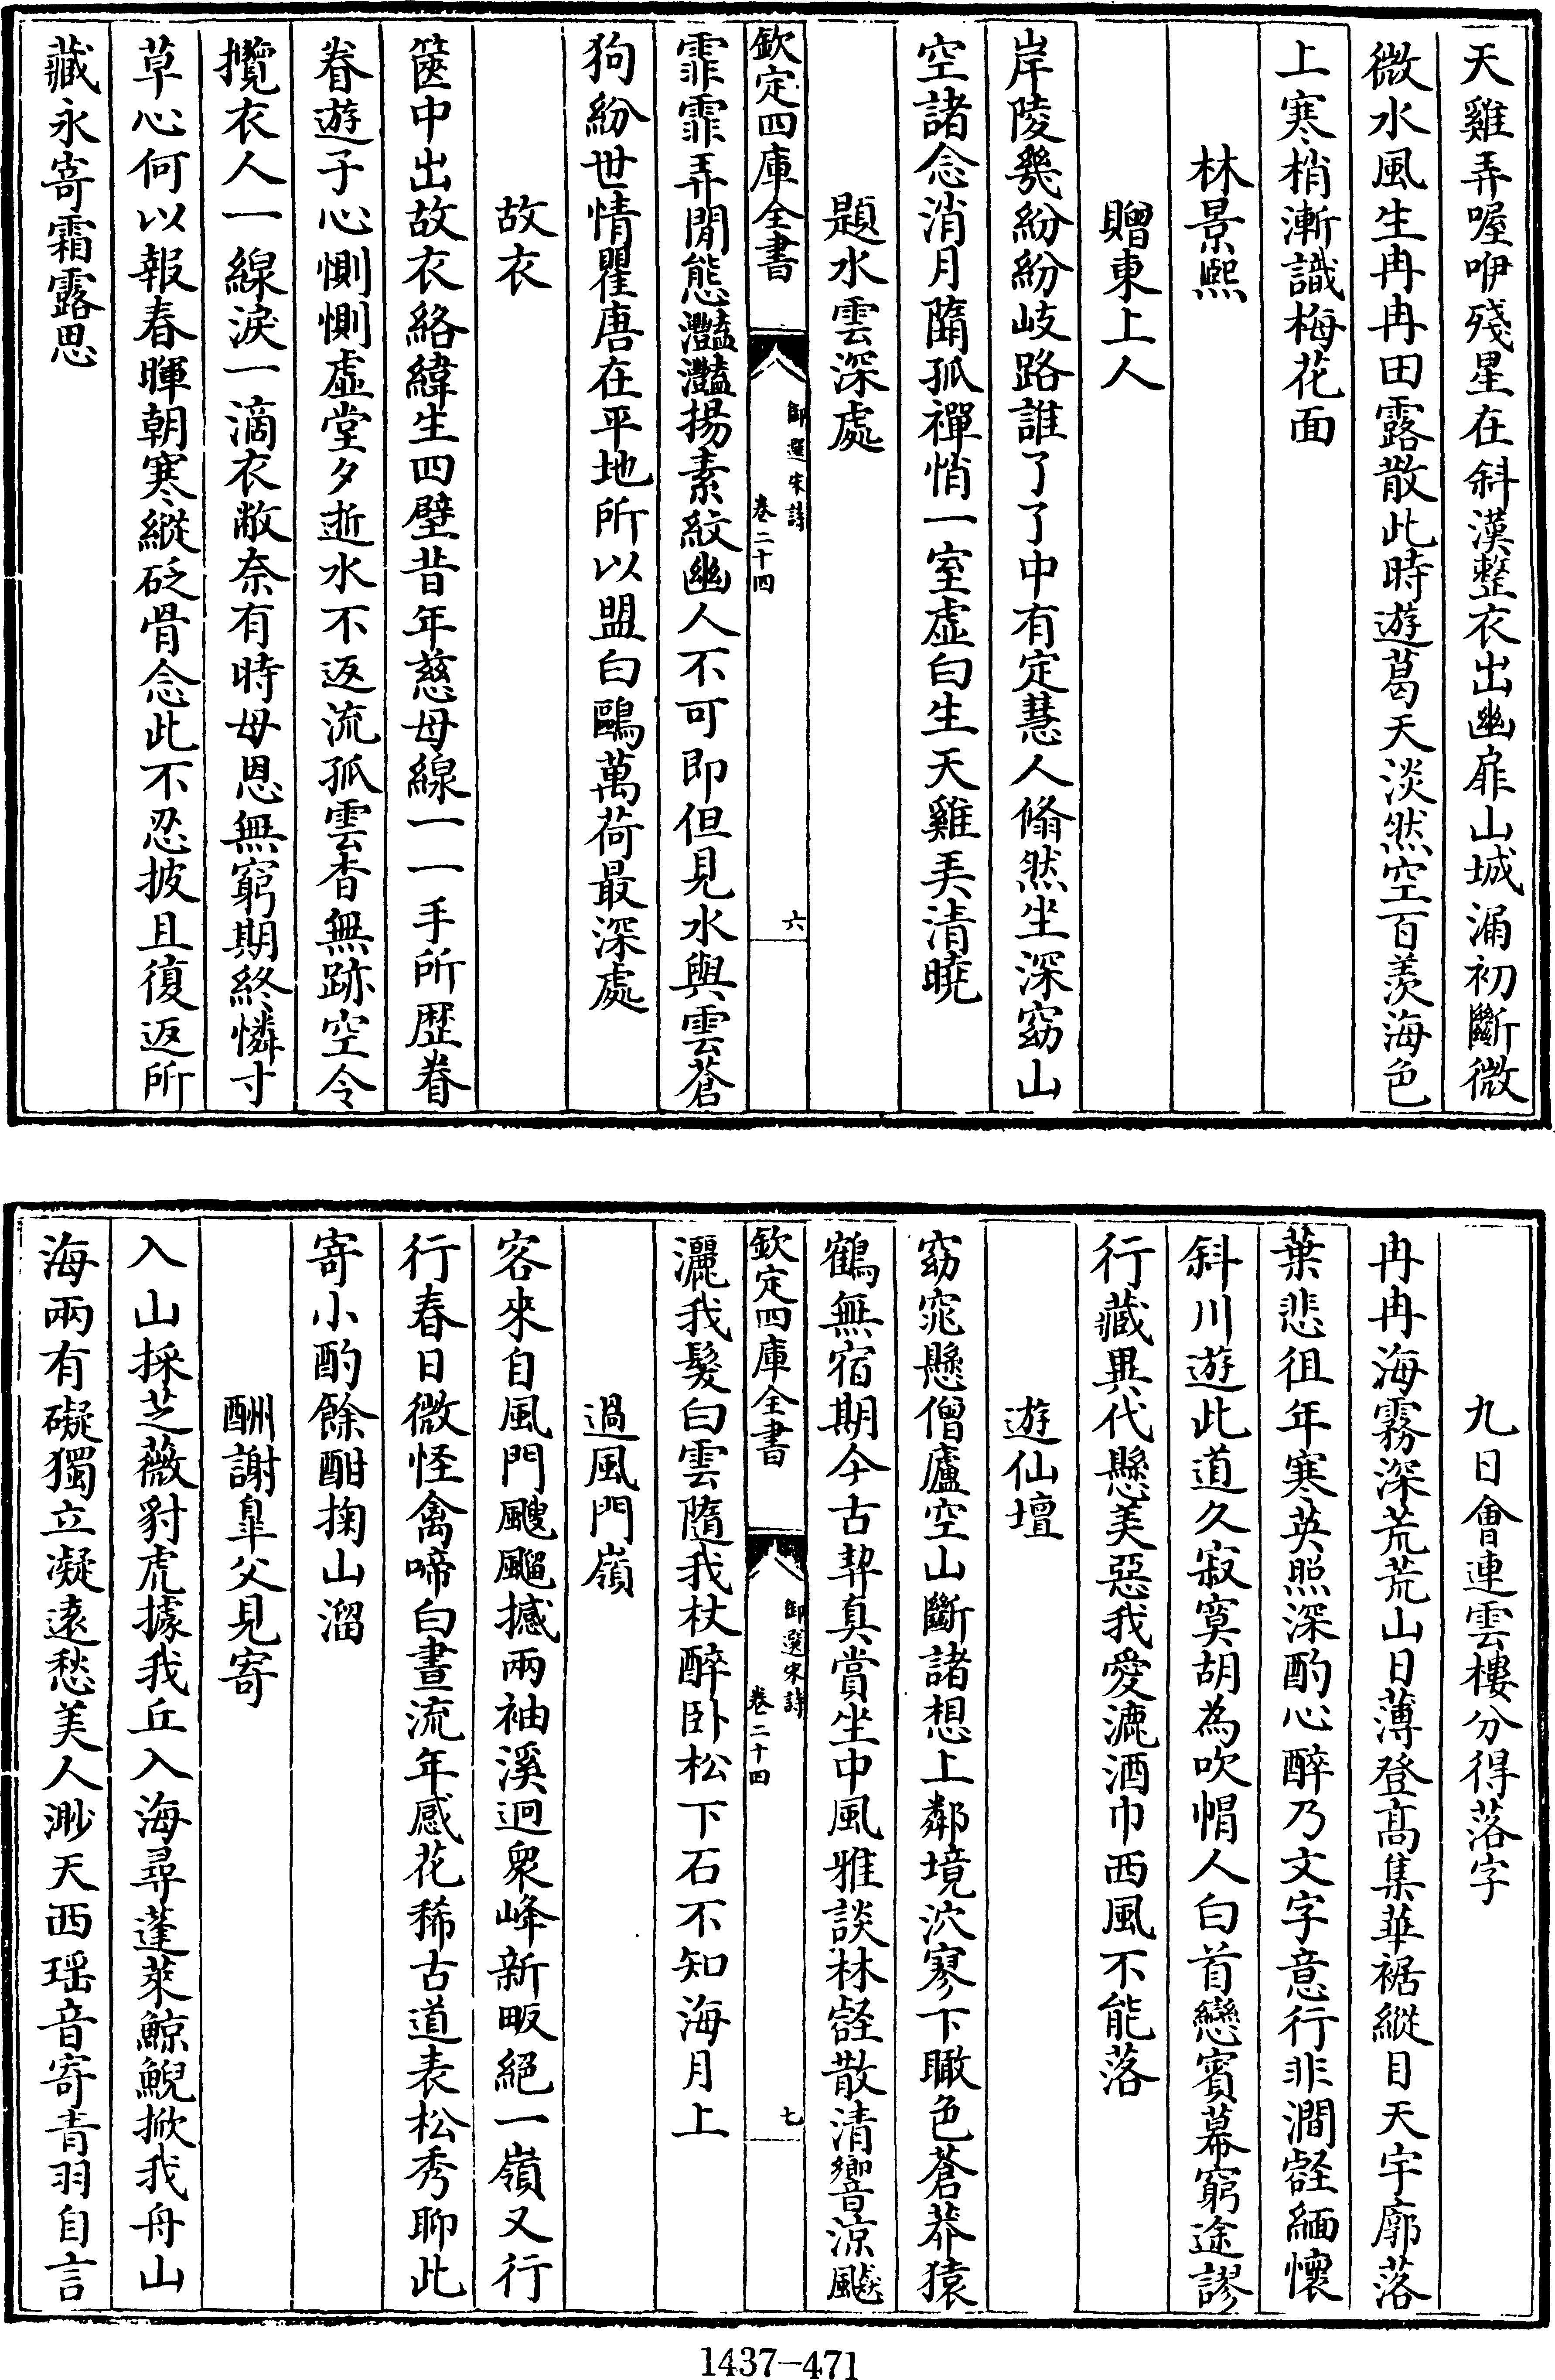 天雞弄喔咿殘星在斜漢整衣出幽扉山城漏初斷微
微水風生冉冉田露散此時遊葛天淡然空百羨海色
上寒梢漸識梅花面
林景熙
贈東上人
岸陵幾紛紛岐路誰了了中有定慧人翛然坐深窈山
空諸念消月隨孤禪悄一室虛白生天雞弄清曉
題水雲深處
霏霏弄閒態灩灩揚素紋幽人不可即但見水與雲蒼
狗紛世情瞿唐在平地所以盟白鷗萬荷最深處
故衣
篋中出故衣絡緯生四壁昔年慈母線一一手所歷眷
眷遊子心惻惻虛堂夕逝水不返流孤雲杳無跡空令
攬衣人一線淚一滴衣敝奈有時母恩無窮期終憐寸
草心何以報春暉朝寒縱砭骨念此不忍披且復返所
藏永寄霜露思
欽定四庫全書
御選宋詩
卷二十四
六
九日會連雲樓分得落字
冉冉海霧深荒荒山日薄登高集華裾縱目天宇廓落
葉悲徂年寒英照深酌心醉乃文字意行非澗壑緬懷
斜川遊此道久寂寞胡為吹帽人白首戀賓幕窮途謬
行藏異代懸美惡我愛漉酒巾西風不能落
遊仙壇
窈窕懸僧廬空山斷諸想上鄰境泬寥下瞰色蒼莽猿
鶴無宿期今古契真賞坐中風雅談林壑散清響涼飇
灑我髮白雲隨我杖醉卧松下石不知海月上
過風門嶺
客來自風門颼飀撼兩袖溪迥衆峰新畈絕一嶺又行
行春日微怪禽啼白晝流年感花稀古道表松秀聊此
寄小酌餘酣掬山溜
酬謝臯父見寄
入山採芝薇豺虎據我丘入海尋蓬萊鯨鯢掀我舟山
海兩有礙獨立凝遠愁美人渺天西瑶音寄青羽自言
欽定四庫全書
御選宋詩
卷二十四
七
1437-471